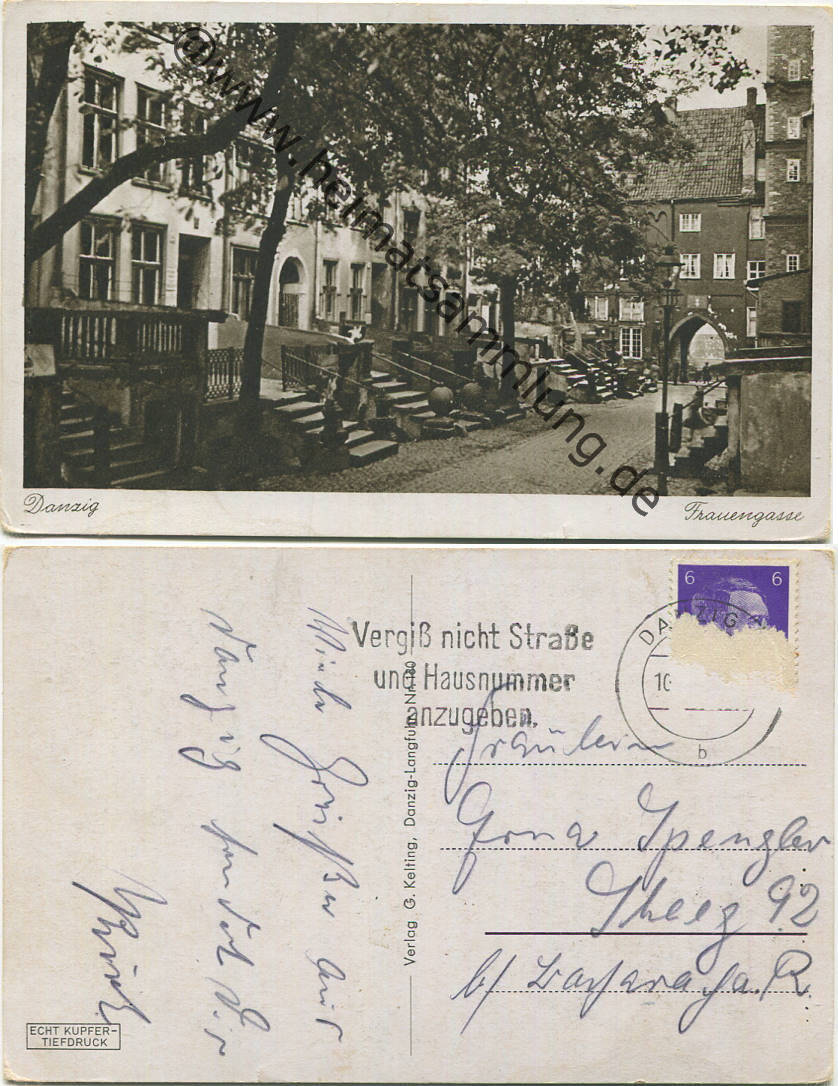 @www.heimatsammlung.de
Danzig
Frauengasse
6 6
DANZIG
10
b
Vergiß nicht Straße
und Hausnummer
anzugeben.
Verlag G. Kelting, Danzig-Langfuhr, Nr. 180
Viele Grüße aus
Danzig sendet Dir
Fräulein
Erna Spengler
92
b/
ECHT KUPFER-
TIEFDRUCK